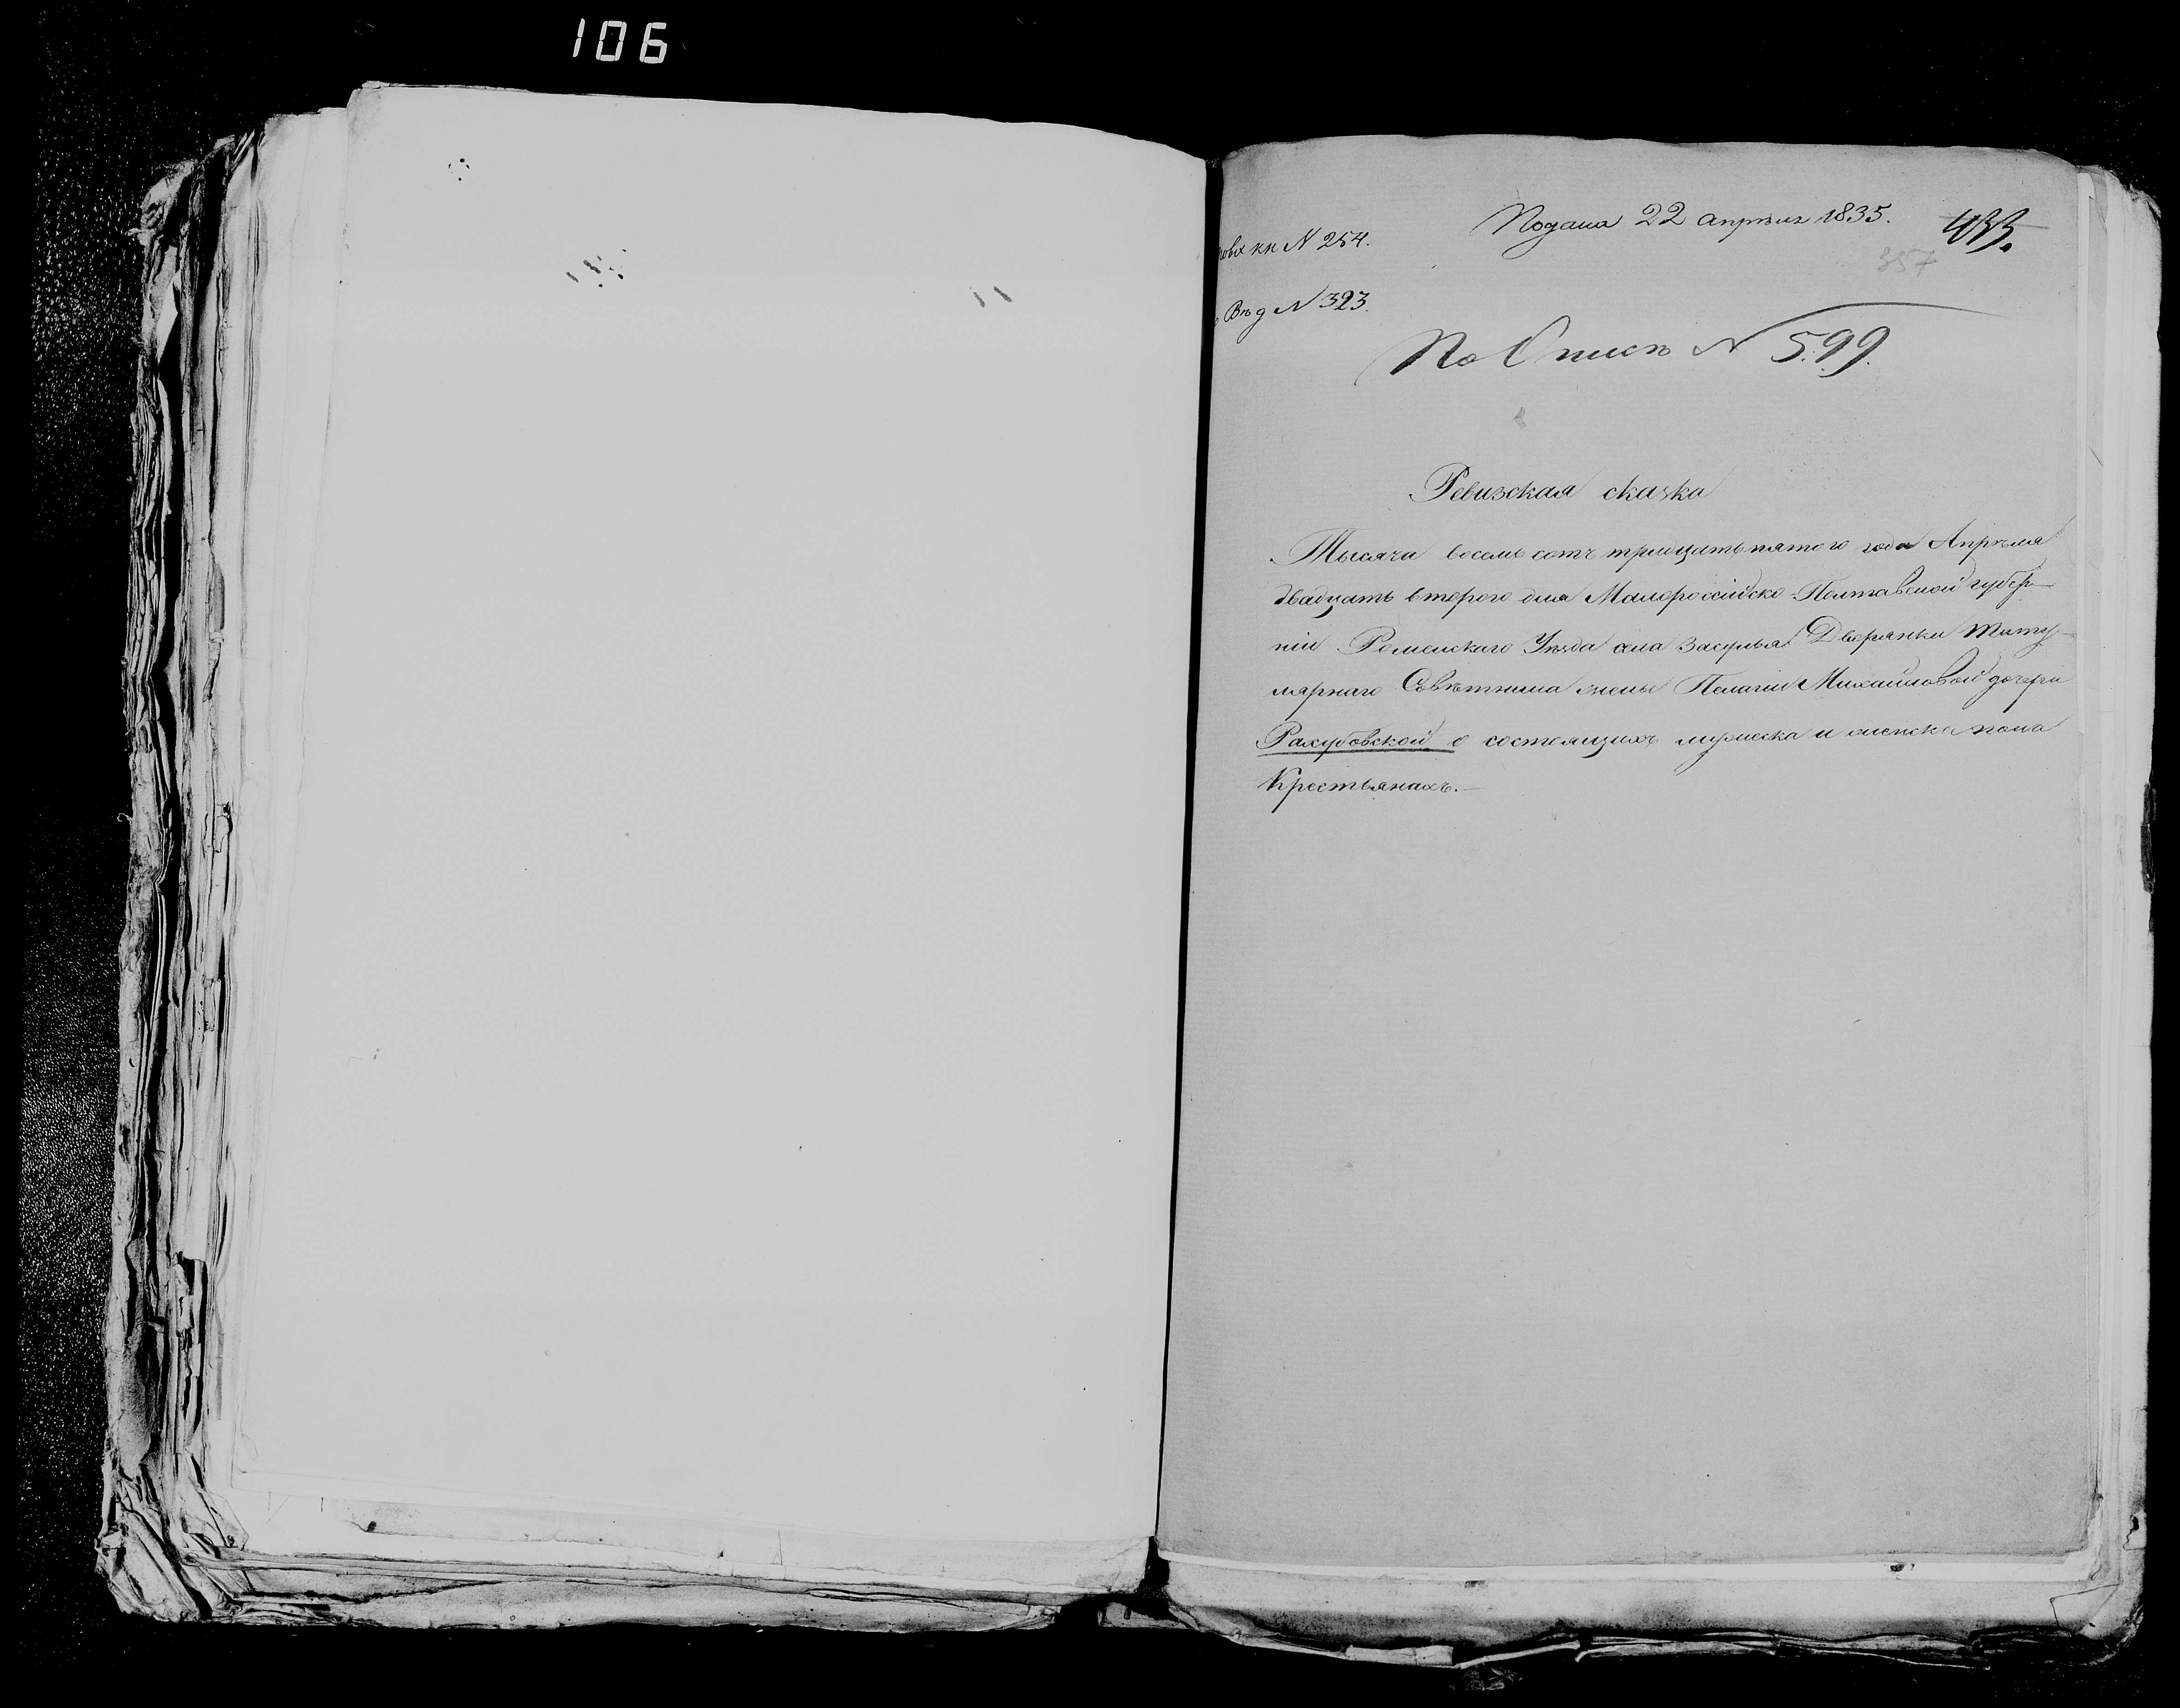 106
Подана 22 апрѣля 1835.
433.
357
кн N 254.
Вѣд N 323.
По Описѣ N 599.
Ревизская сказка
Тысяча восемь сотъ тридцать пятого года Апрѣля
двадцать второго дня Малороссійско-Полтавской губер-
ніи Роменского Уѣзда села Засулья Дворянки Титу-
лярнаго Совѣтника жены Пелагіи Михайловой дочери
Рахубовской о состоящихъ мужеска и женска пола
Крестьянахъ.-